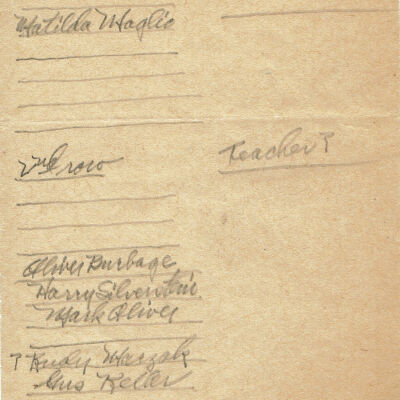 Matilda Maglio
2nd row
Teacher?
Oliver Burbage
Harry Silverstein
Mark Oliver
? Rudy Marzak
Gus Keller